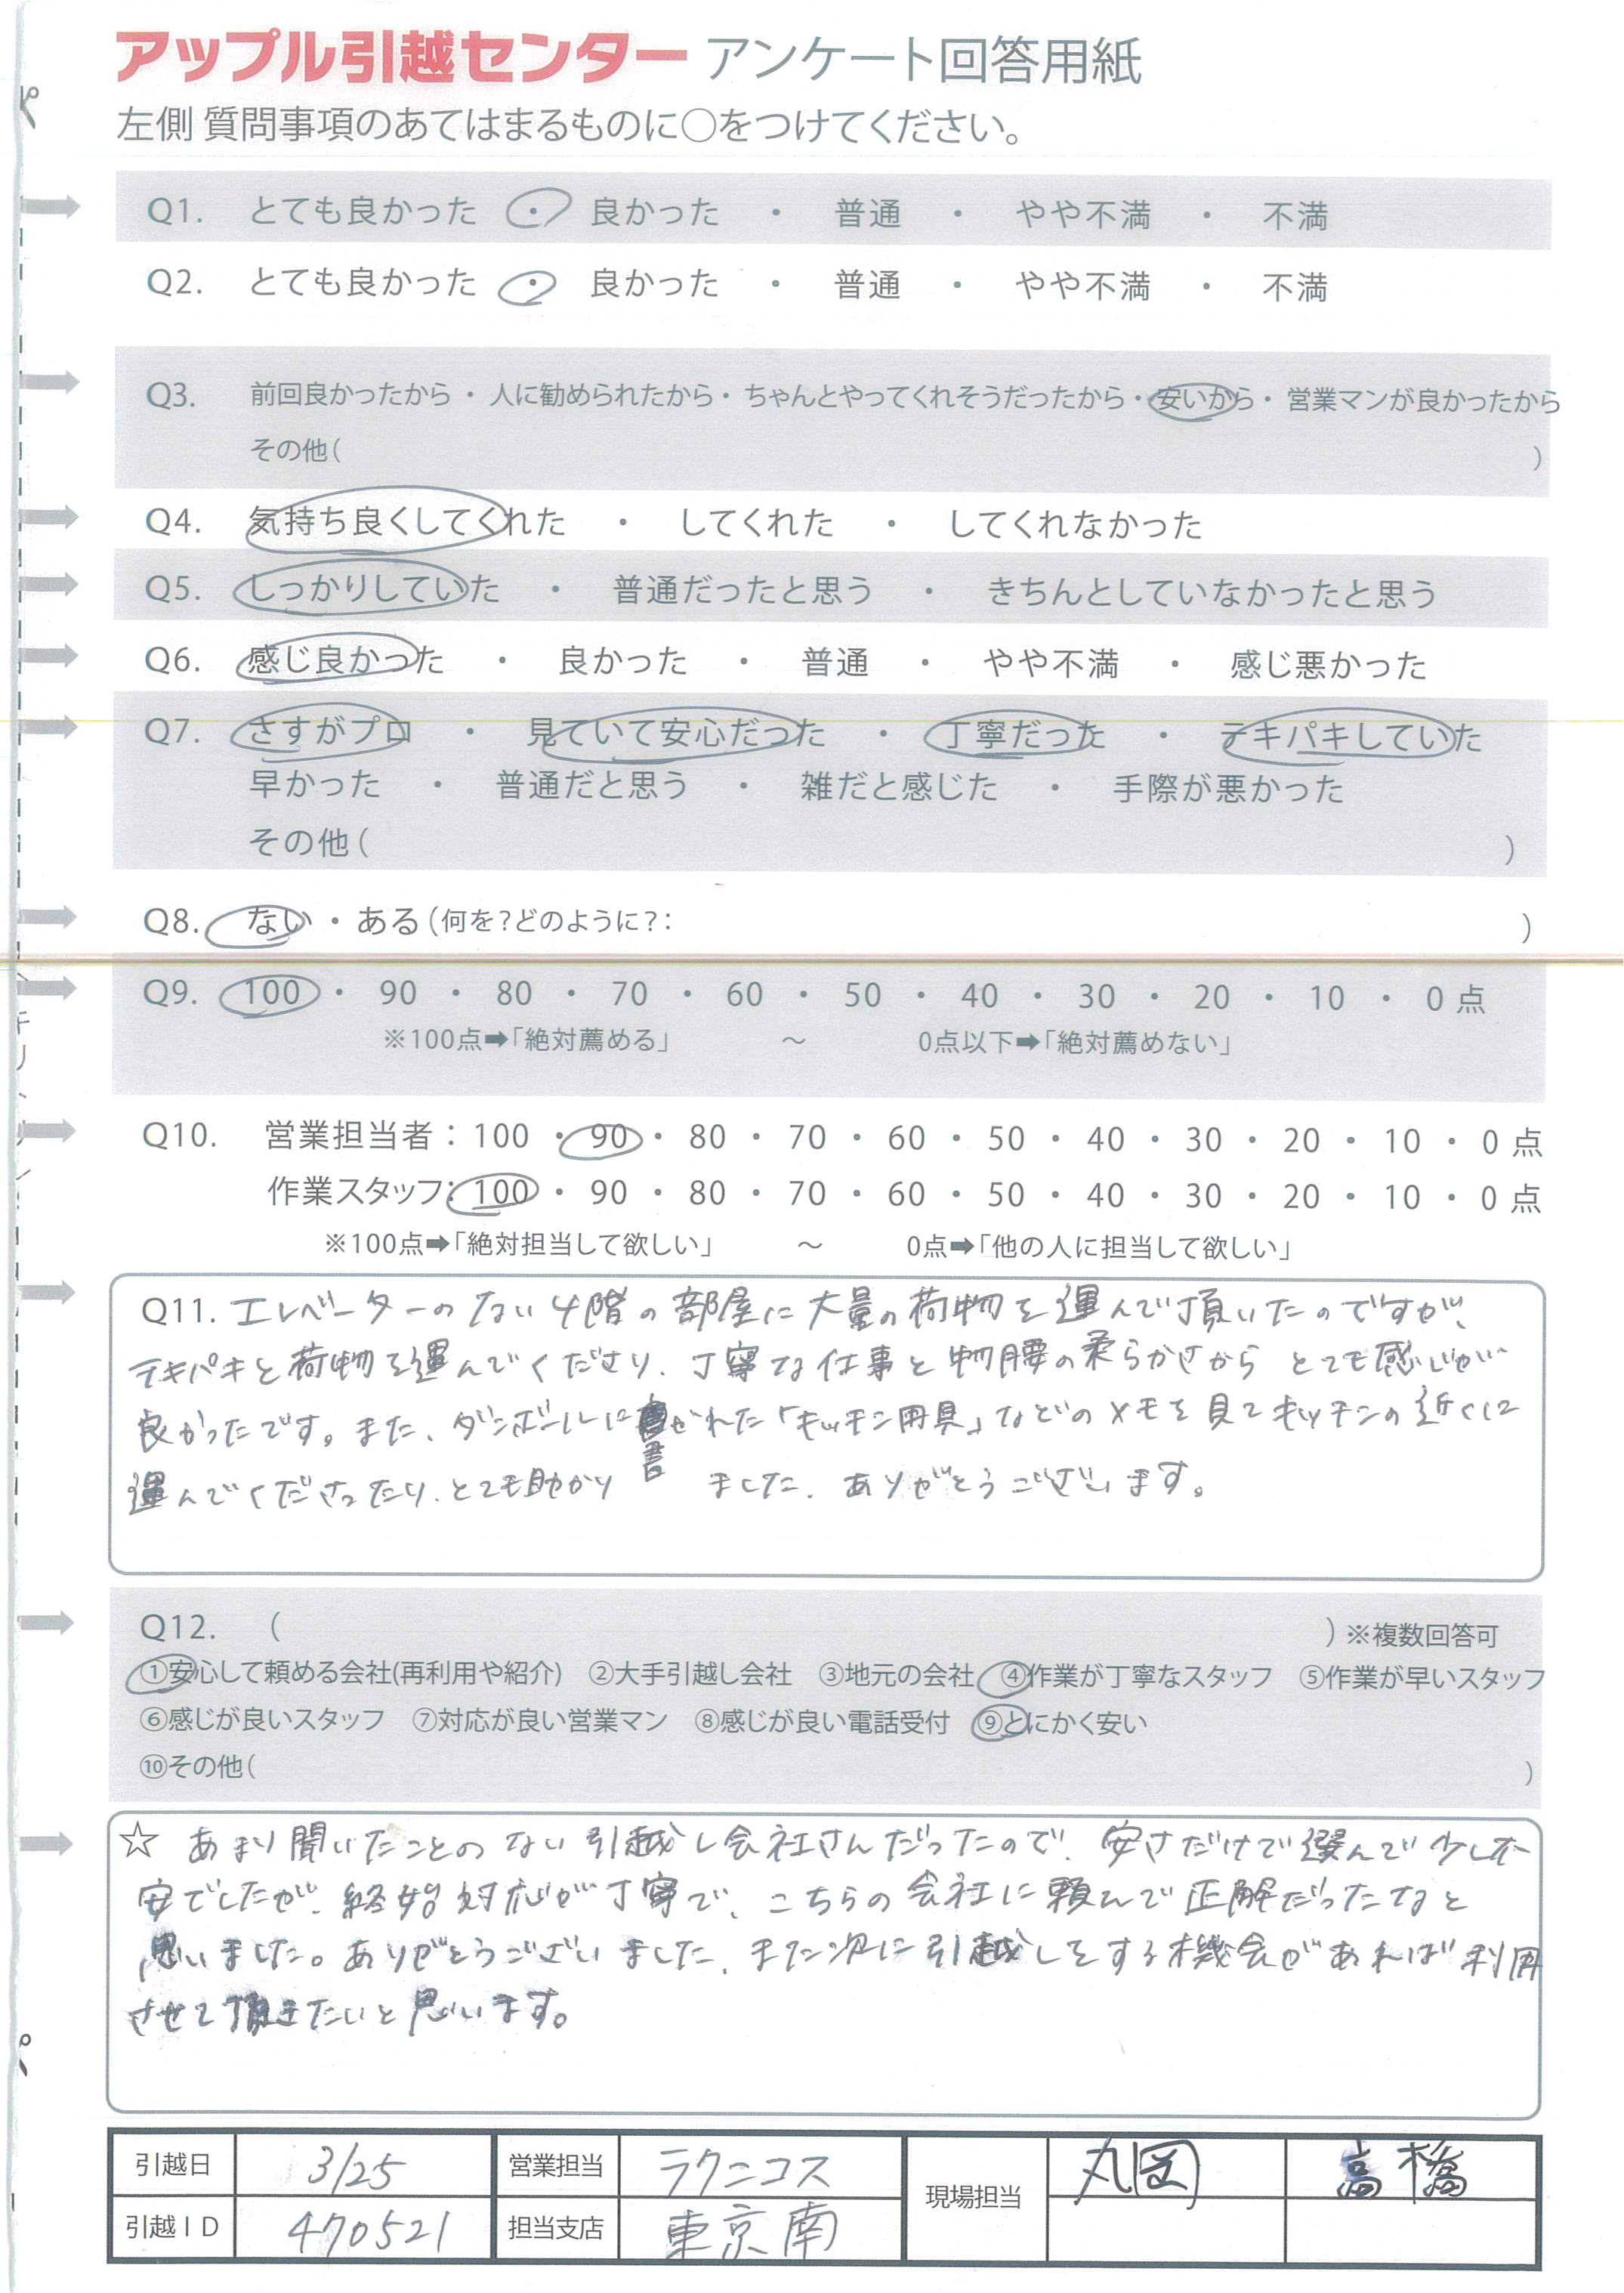 アップル引越センター アンケート回答用紙
左側 質問事項のあてはまるものに○をつけてください。
Q1. とても良かった ・ 良かった ・ 普通 ・ やや不満 ・ 不満
Q2. とても良かった ・ 良かった ・ 普通 ・ やや不満 ・ 不満
Q3. 前回良かったから ・ 人に勧められたから ・ ちゃんとやってくれそうだったから ・ 安いから ・ 営業マンが良かったから
その他( )
Q4. 気持ち良くしてくれた ・ してくれた ・ してくれなかった
Q5. しっかりしていた ・ 普通だったと思う ・ きちんとしていなかったと思う
Q6. 感じ良かった ・ 良かった ・ 普通 ・ やや不満 ・ 感じ悪かった
Q7. さすがプロ ・ 見ていて安心だった ・ 丁寧だった ・ テキパキしていた
早かった ・ 普通だと思う ・ 雑だと感じた ・ 手際が悪かった
その他( )
Q8. ない ・ ある(何を?どのように?: )
Q9. 100 ・ 90 ・ 80 ・ 70 ・ 60 ・ 50 ・ 40 ・ 30 ・ 20 ・ 10 ・ 0 点
※100点➡「絶対薦める」 ~ 0点以下➡「絶対薦めない」
Q10. 営業担当者:100 ・ 90 ・ 80 ・ 70 ・ 60 ・ 50 ・ 40 ・ 30 ・ 20 ・ 10 ・ 0 点
作業スタッフ:100 ・ 90 ・ 80 ・ 70 ・ 60 ・ 50 ・ 40 ・ 30 ・ 20 ・ 10 ・ 0 点
※100点➡「絶対担当して欲しい」 ~ 0点➡「他の人に担当して欲しい」
Q11. エレベーターのない4階の部屋に大量の荷物を運んで頂いたのですが、
テキパキと荷物を運んでくださり、丁寧な仕事と物腰の柔らかさからとても感じが
良かったです。また、ダンボールに書かれた「キッチン用具」などのメモを見てキッチンの近くに
運んでくださったり、とても助かりました。ありがとうございます。
Q12. ( ) ※複数回答可
①安心して頼める会社(再利用や紹介) ②大手引越し会社 ③地元の会社 ④作業が丁寧なスタッフ ⑤作業が早いスタッフ
⑥感じが良いスタッフ ⑦対応が良い営業マン ⑧感じが良い電話受付 ⑨とにかく安い
⑩その他( )
☆ あまり聞いたことのない引越し会社さんだったので、安さだけで選んで少し不
安でしたが、終始対応が丁寧で、こちらの会社に頼んで正解だったなと
思いました。ありがとうございました。また次に引越しをする機会があれば利用
させて頂きたいと思います。
引越日 3/25 営業担当 ラクニコス 現場担当 丸岡 高橋
引越ID 470521 担当支店 東京南